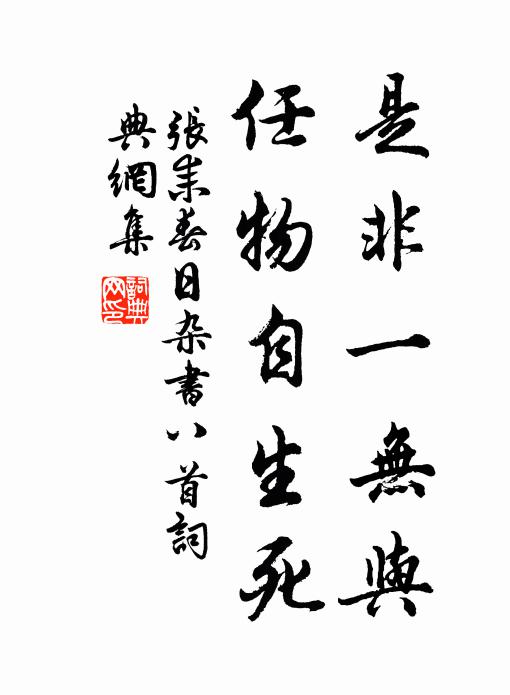 是非一無與
任物自生死
張耒春日杂書八首詞
典網集
詞典
网印